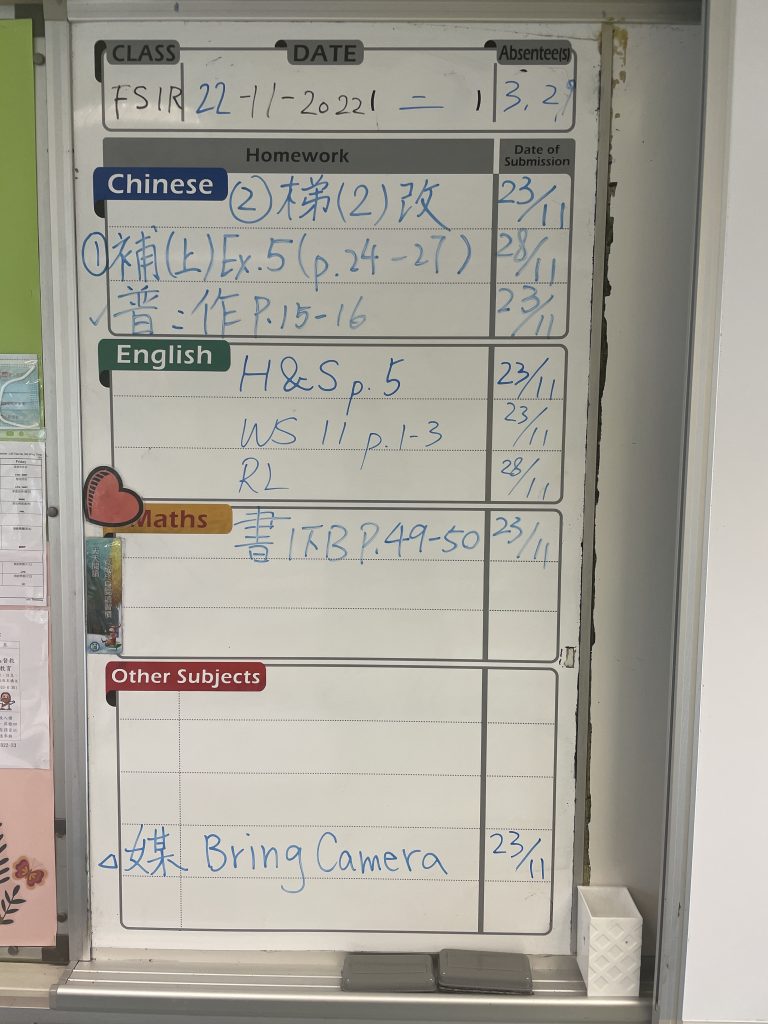 CLASS DATE Absentee(s)
FS1R 22-11-2022 ( 二 ) 3, 29
Homework Date of Submission
Chinese ② 梯(2)改 23/11
① 補(上)Ex.5(p.24-27) 28/11
✓ 普：作 P.15-16 23/11
English H&S p. 5 23/11
WS 11 p.1-3 23/11
RL 28/11
Maths 書1下B P.49-50 23/11
Other Subjects
△ 媒 Bring Camera 23/11